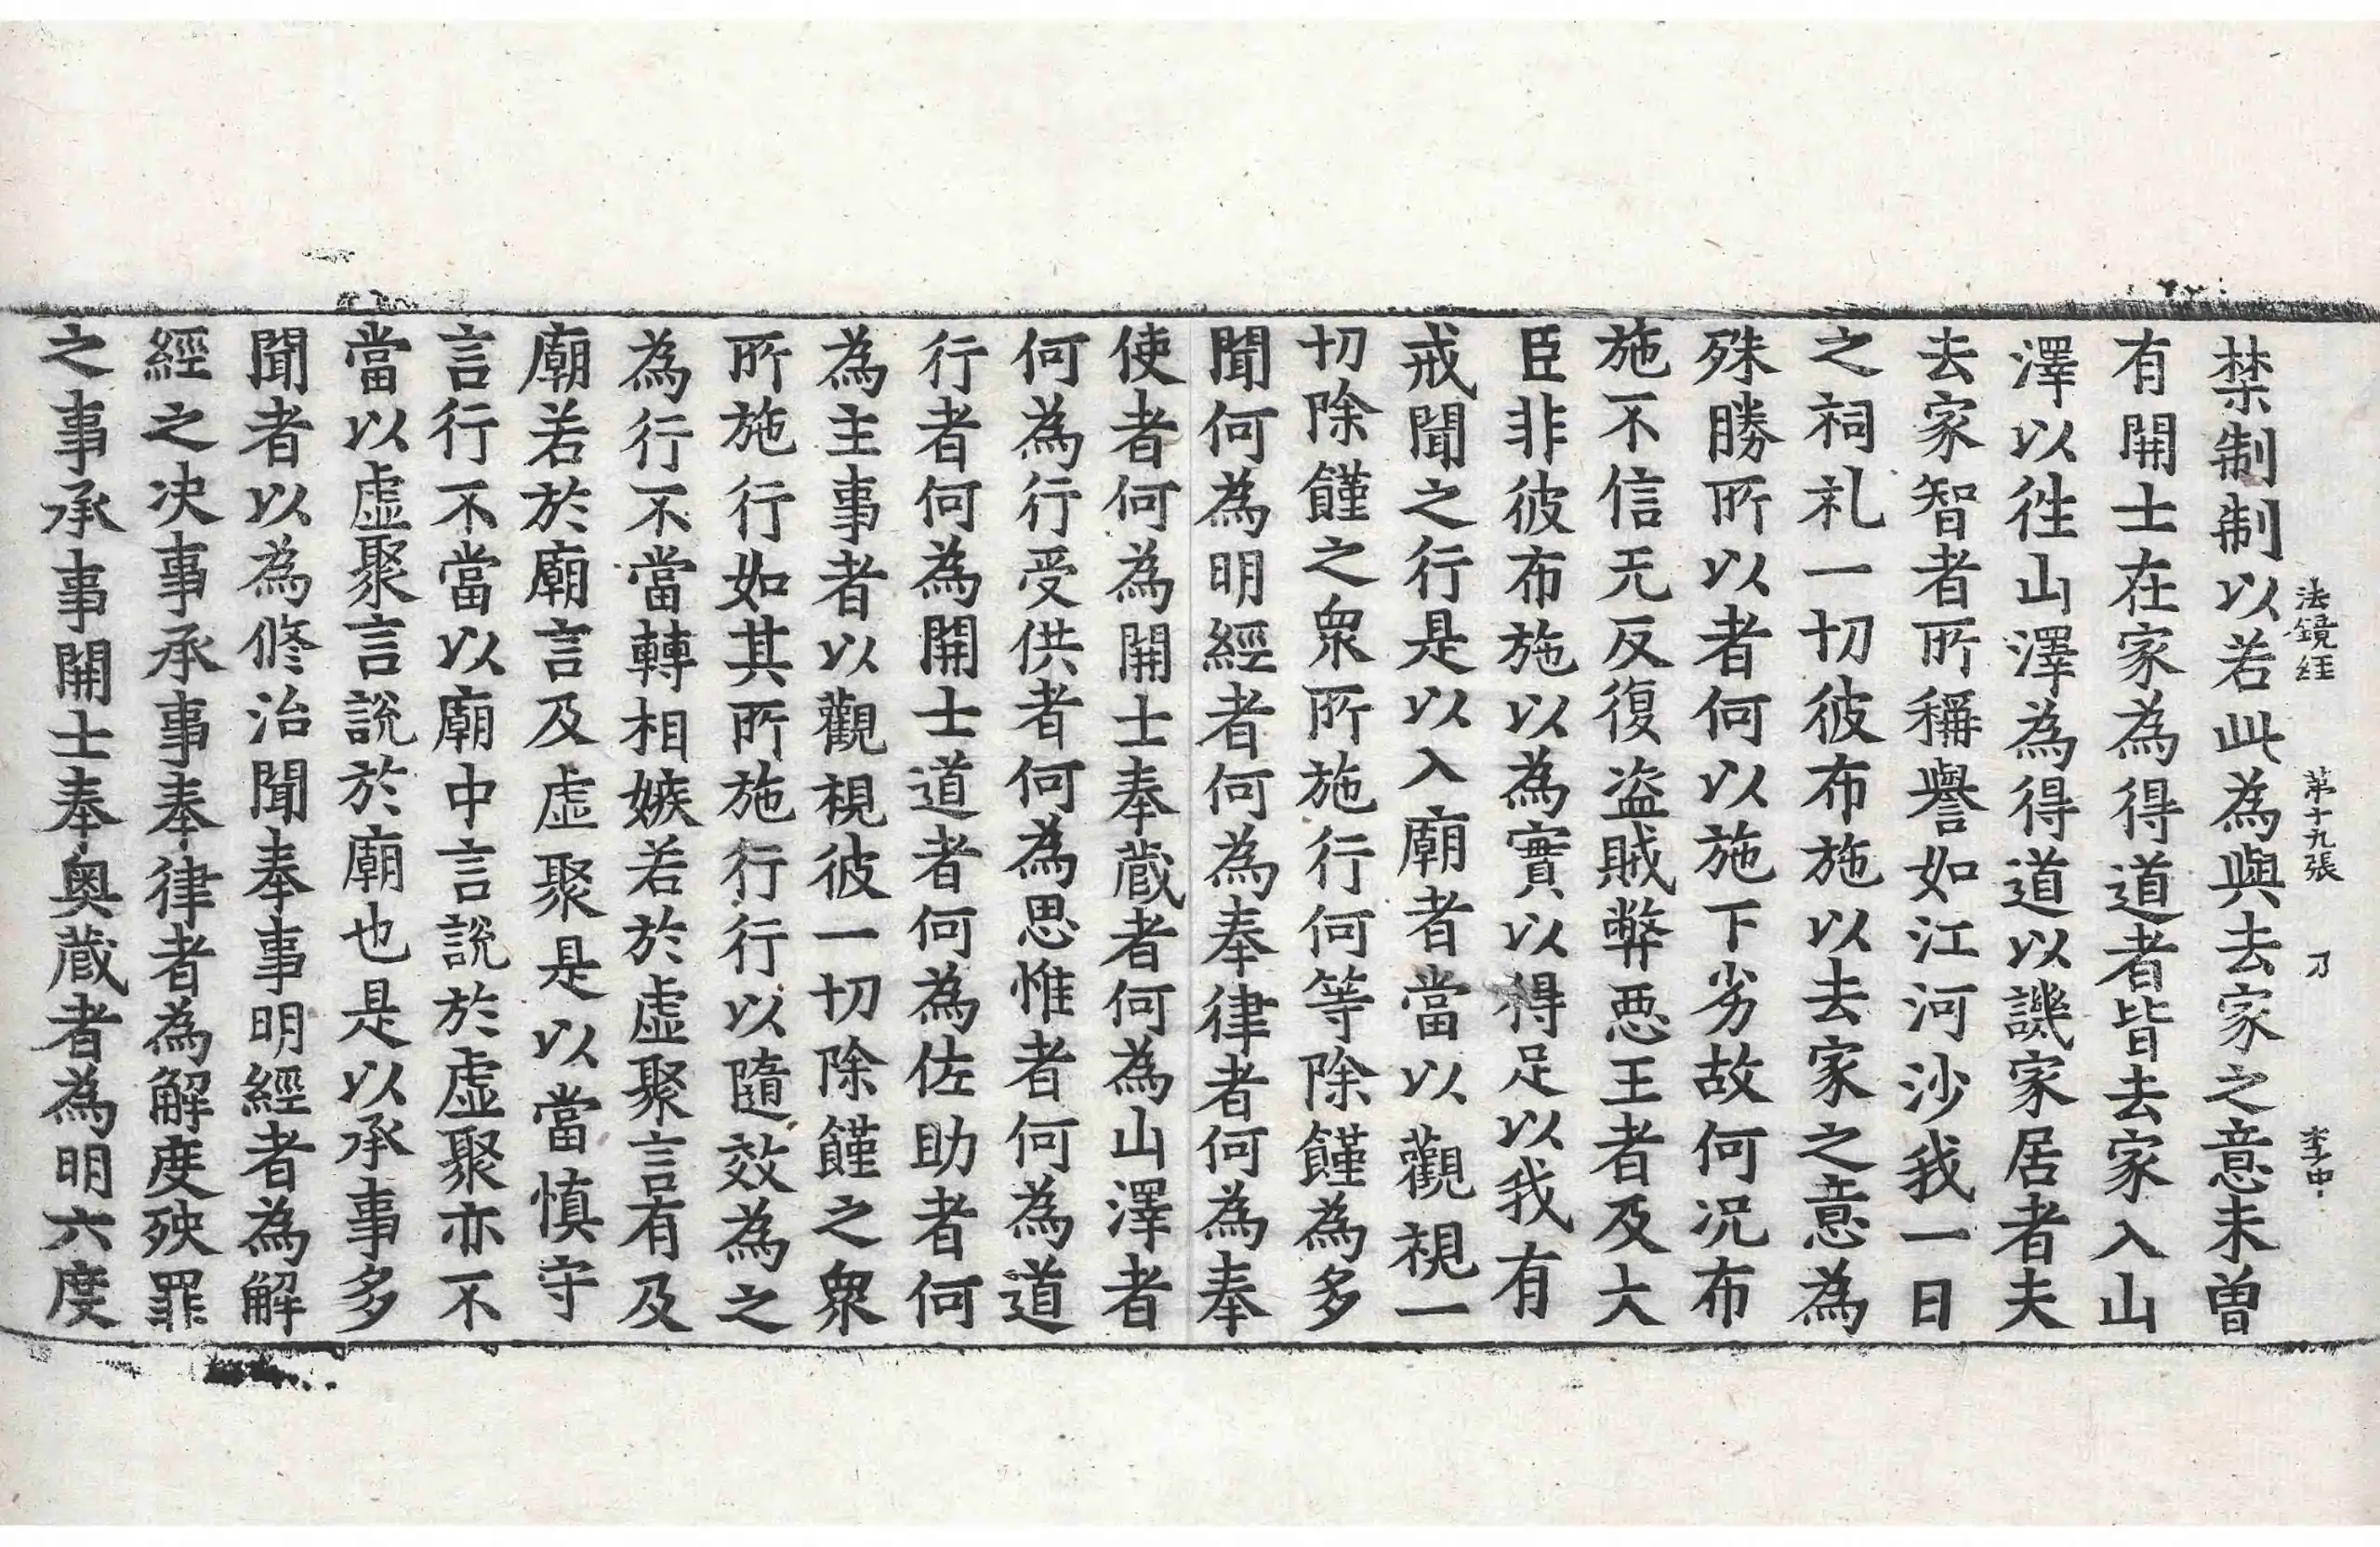 法鏡経 第十九張 刀 李中
禁制制以若此為與去家之意未曽
有開士在家為得道者皆去家入山
澤以徃山澤為得道以譏家居者夫
去家智者所稱譽如江河沙我一日
之祠礼一切彼布施以去家之意為
殊勝所以者何以施下劣故何況布
施不信无反復盗賊弊悪王者及大
臣非彼布施以為實以得足以我有
戒聞之行是以入廟者當以觀視一
切除饉之衆所施行何等除饉為多
聞何為明經者何為奉律者何為奉
使者何為開士奉蔵者何為山澤者
何為行受供者何為思惟者何為道
行者何為開士道者何為佐助者何
為主事者以觀視彼一切除饉之衆
所施行如其所施行行以隨效為之
為行不當轉相嫉若於虚聚言有及
廟若於廟言及虚聚是以當慎守
言行不當以廟中言説於虚聚亦不
當以虚聚言説於廟也是以承事多
聞者以為修治聞奉事明經者為解
經之决事承事奉律者為解度殃罪
之事承事開士奉奥蔵者為明六度